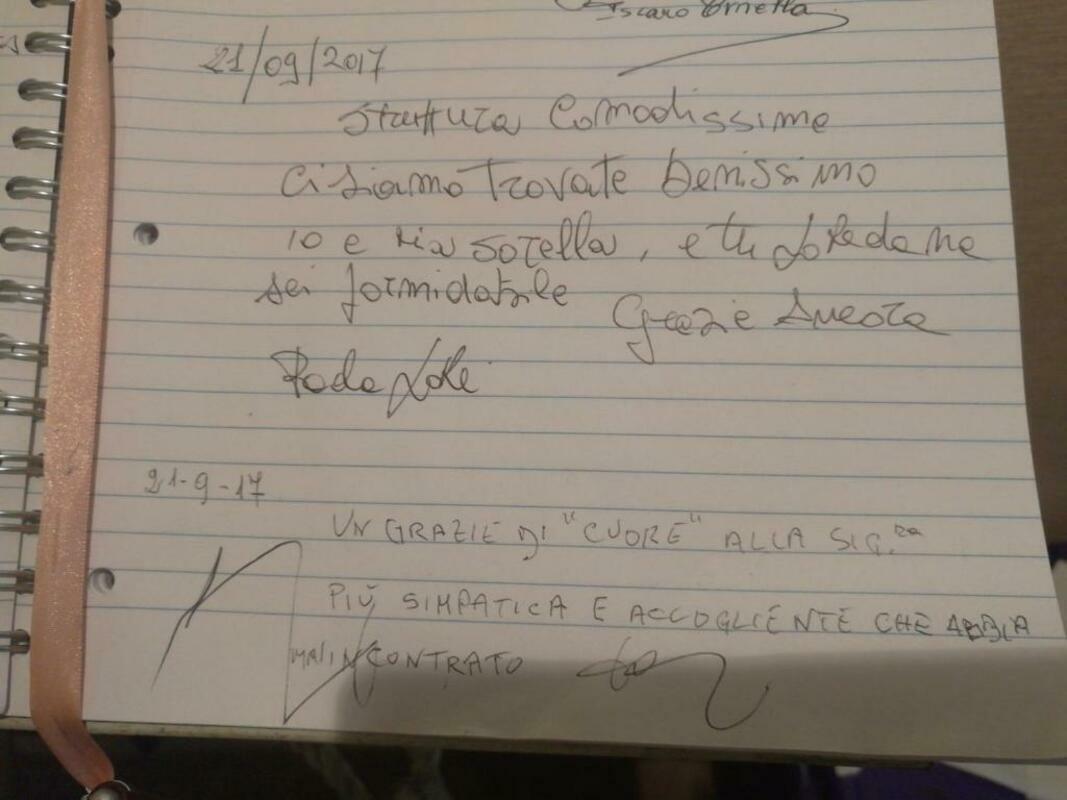 21/09/2017
Struttura Comodissima
Ci siamo trovate benissimo
io e mia sorella, e tu Loredana
sei formidabile
Grazie Ancora
21-9-17
UN GRAZIE DI "CUORE" ALLA SIG.ra
PIÙ SIMPATICA E ACCOGLIENTE CHE ABBIA
MAI INCONTRATO